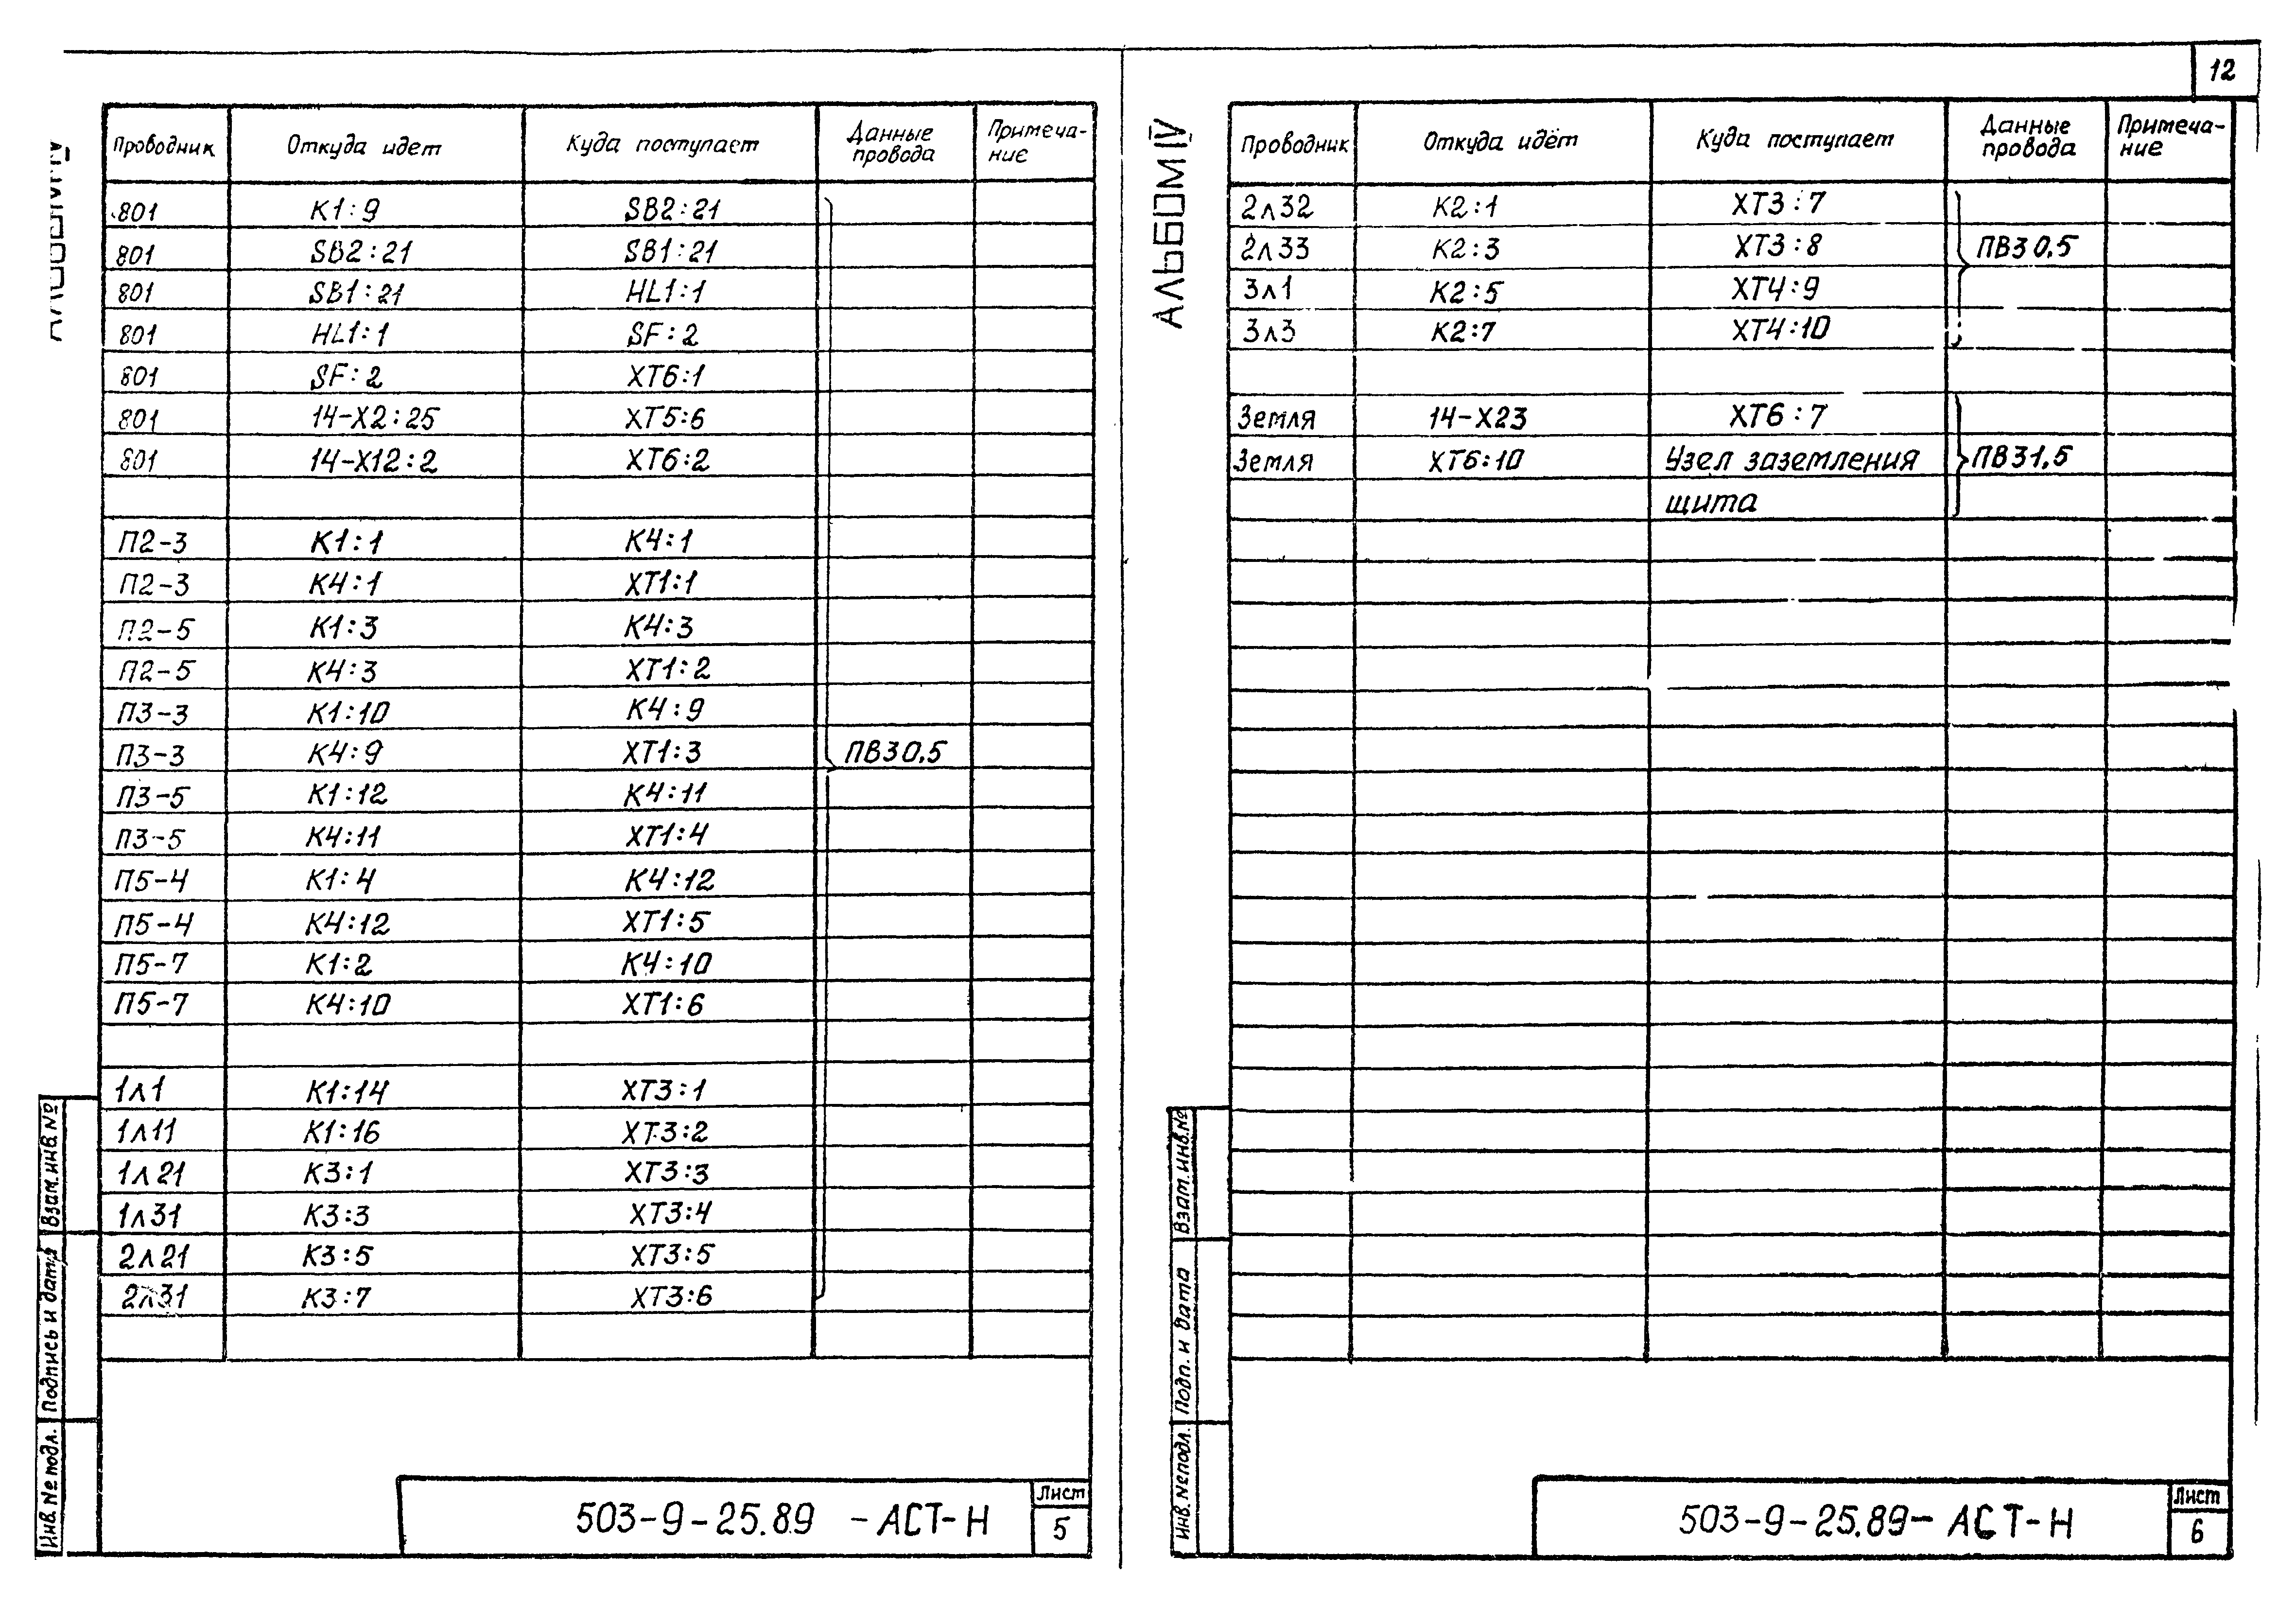 12
АЛЬБОМ IV
Проводник Откуда идет Куда поступает Данные провода Примеча-ние
801 К1:9 SB2:21
801 SB2:21 SB1:21
801 SB1:21 HL1:1
801 HL1:1 SF:2
801 SF:2 ХТ6:1
801 14-Х2:25 ХТ5:6
801 14-Х12:2 ХТ6:2
П2-3 К1:1 К4:1
П2-3 К4:1 ХТ1:1
П2-5 К1:3 К4:3
П2-5 К4:3 ХТ1:2
П3-3 К1:10 К4:9
П3-3 К4:9 ХТ1:3 ПВ3 0,5
П3-5 К1:12 К4:11
П3-5 К4:11 ХТ1:4
П5-4 К1:4 К4:12
П5-4 К4:12 ХТ1:5
П5-7 К1:2 К4:10
П5-7 К4:10 ХТ1:6
1л1 К1:14 ХТ3:1
1л11 К1:16 ХТ3:2
1л21 К3:1 ХТ3:3
1л31 К3:3 ХТ3:4
2л21 К3:5 ХТ3:5
2л31 К3:7 ХТ3:6
Инв. № подл. Подпись и дата Взам. инв. №
503-9-25.89 -АСТ-Н
Лист
5
АЛЬБОМ IV
Проводник Откуда идёт Куда поступает Данные провода Примеча-ние
2л32 К2:1 ХТ3:7
2л33 К2:3 ХТ3:8 ПВ3 0,5
3л1 К2:5 ХТ4:9
3л3 К2:7 ХТ4:10
Земля 14-Х23 ХТ6:7
Земля ХТ6:10 Узел заземления ПВ3 1,5
щита
Инв. № подл. Подп. и дата Взам. инв. №
503-9-25.89-АСТ-Н
Лист
6